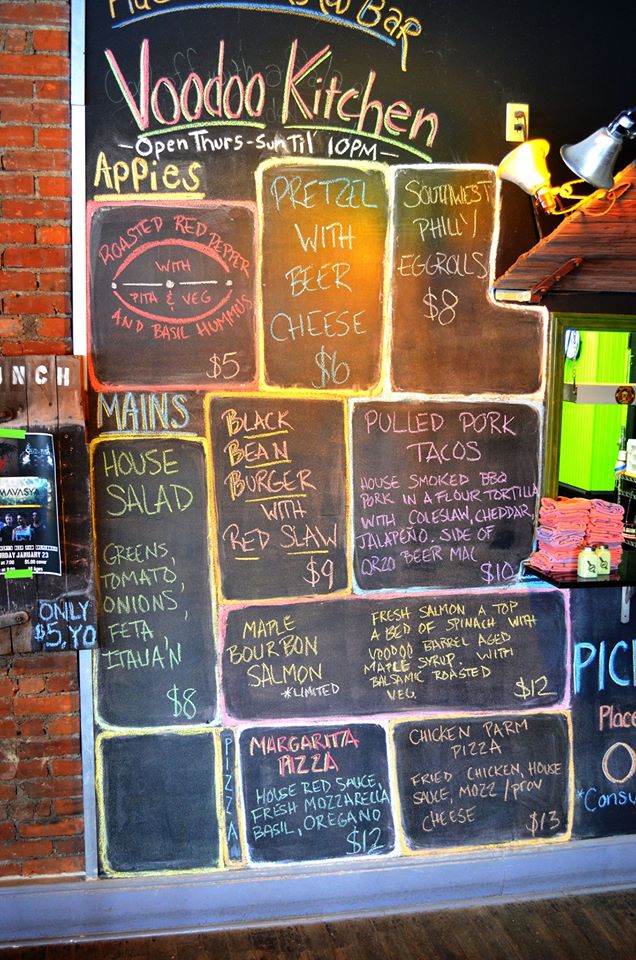 Bar
Voodoo Kitchen
Open Thurs-Sun Til 10PM
Appies
Roasted Red Pepper
with
Pita & Veg
and Basil Hummus
$5
Pretzel
with
Beer
Cheese
$6
Southwest
Philly
Eggrolls
$8
Mains
House
Salad
Greens,
Tomato,
Onions,
Feta,
Italia'n
$8
Black
Bean
Burger
with
Red Slaw
$9
Pulled Pork
Tacos
House smoked BBQ
Pork in a flour tortilla
with coleslaw, cheddar,
jalapeño. Side of
orzo beer mac
$10
Maple
Bourbon
Salmon
*Limited
Fresh salmon a top
a bed of spinach with
Voodoo barrel aged
maple syrup. with
balsamic roasted
veg.
$12
Pizza
Margaritta
Pizza
House red sauce,
fresh mozzarella
basil, oregano
$12
Chicken Parm
Pizza
Fried chicken, house
sauce, mozz/prov
cheese
$13
UNCH
MAVASYA
URDAY JANUARY 23
Only
$5, Yo
Pic
Place
O
*Consu